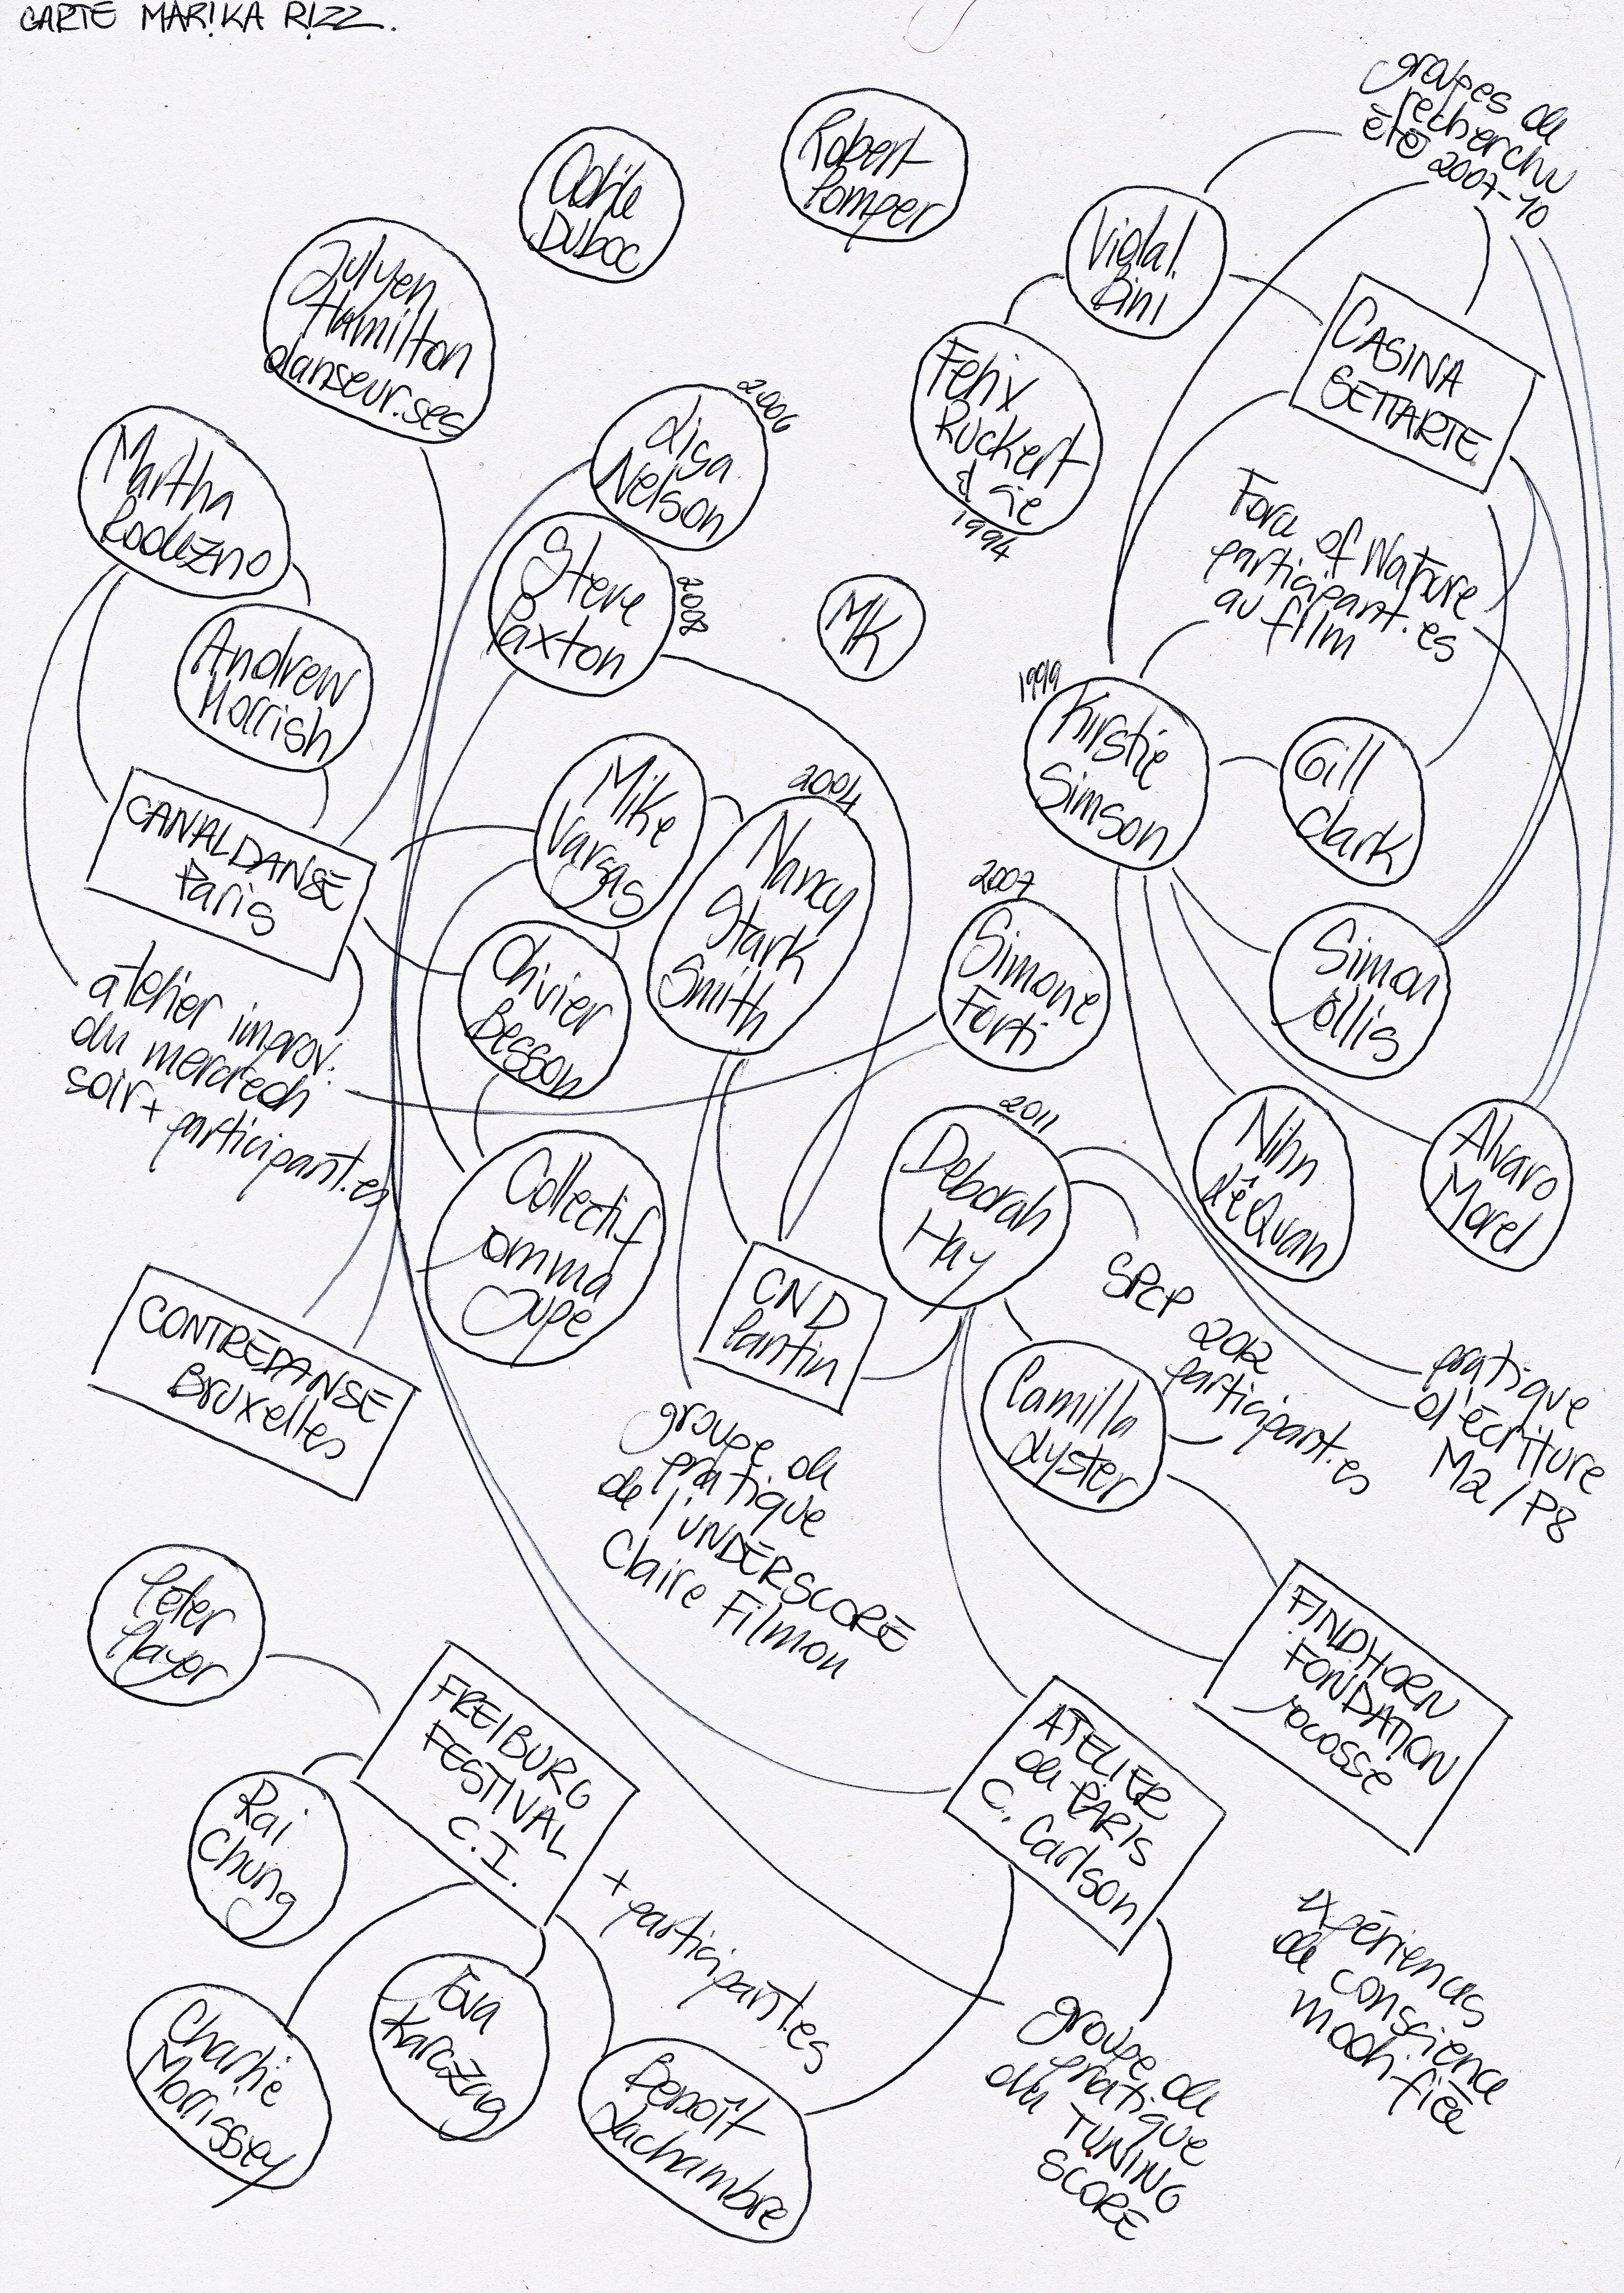 CARTE MARIKA RIZZ.
groupes de
recherche
été
2007-10
Odile
Duboc
Robert
Pomper
Vidal
Bini
Julyen
Hamilton
danseur.ses
CASINA
SETTARTE
Felix
Ruckert
& cie
1994
2006
Lisa
Nelson
Martha
Rodezno
Force of Nature
participant.es
au film
Steve
Paxton
2008
MK
Andrew
Morrish
1999
Kirstie
Simson
Gill
Clark
Mike
Vargas
2004
Nancy
Stark
Smith
CANALDANSE
Paris
2007
Simone
Forti
Simon
Ellis
Olivier
Besson
atelier improv.
du mercredi
soir + participant.es
2011
Deborah
Hay
Nihn
Lê Quan
Alvaro
Morel
Collectif
Emma
Jupe
CND
Pantin
SPCP 2012
participant.es
CONTREDANSE
Bruxelles
Camilla
Lyster
pratique
d'écriture
M2/P8
groupe de
pratique
de l'UNDERSCORE
Claire Filmon
Peter
Player
FINDHORN
FONDATION
Ecosse
FREIBURG
FESTIVAL
C.I.
ATELIER
de PARIS
C. Carlson
Rai
Chung
+ participant.es
expériences
de conscience
modifiée
Charlie
Morrissey
Eva
Karczag
Benoît
Lachambre
groupe de
pratique
du TUNING
SCORE